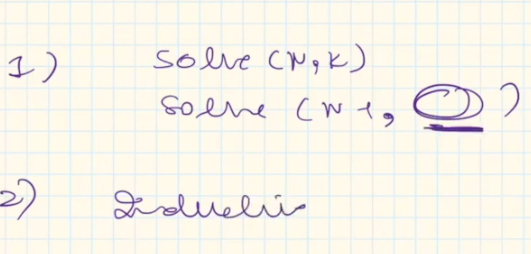 1) Solve (N, K)
Solve (N-1, )
2) Inductio